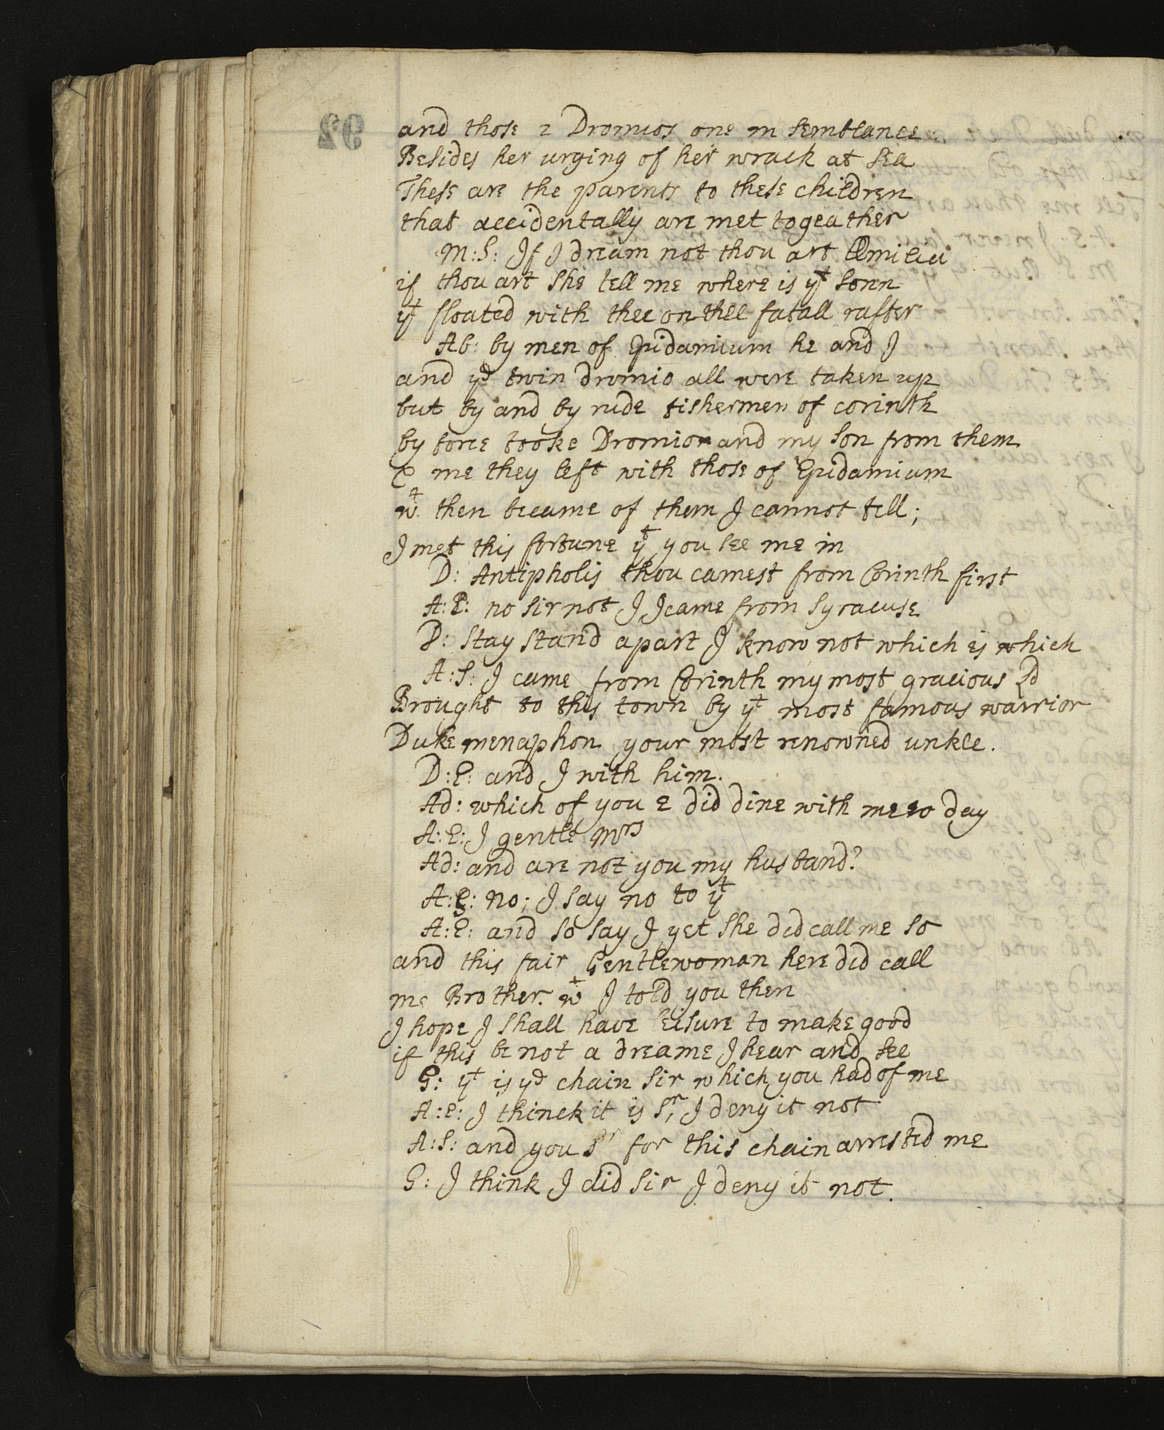 and those 2 Dromios one in semblance
Besides her urging of her wrack at sea
These are the parents to these children
that accidentally are met togeather
M:S: If I dream not thou art Æmilia
if thou art she tell me where is yt sonn
yt floated with thee on the fatall rafter
Ab: by men of Epidamium he and I
and ye twin dromio all were taken up
but by and by rude fishermen of corinth
by force tooke Dromio and my son from them
& me they left with those of Epidamium
wt then became of them I cannot tell;
I met this fortune yt you see me in
D: Antipholis thou camest from Corinth first
A:E: no sir not I I came from Syracuse
D: stay stand apart I know not which is which
A:S: I came from Corinth my most gracious Ld
Brought to this town by yt most famous warrior
Duke menaphon your most renowned unkle.
D:E: and I with him.
Ad: which of you 2 did dine with me to day
A:E: I gentle Mrs
Ad: and are not you my husband?
A:E: no; I say no to yt
A:E: and so say I yet she did call me so
and this fair Gentlewoman here did call
me Brother. wt I told you then
I hope I shall have leisure to make good
if this be not a dreame I hear and see
G: yt is ye chain sir which you had of me
A:E: I thinck it is Sr, I deny it not
A:S: and you Sr for this chain arrested me
G: I think I did sir I deny it not.